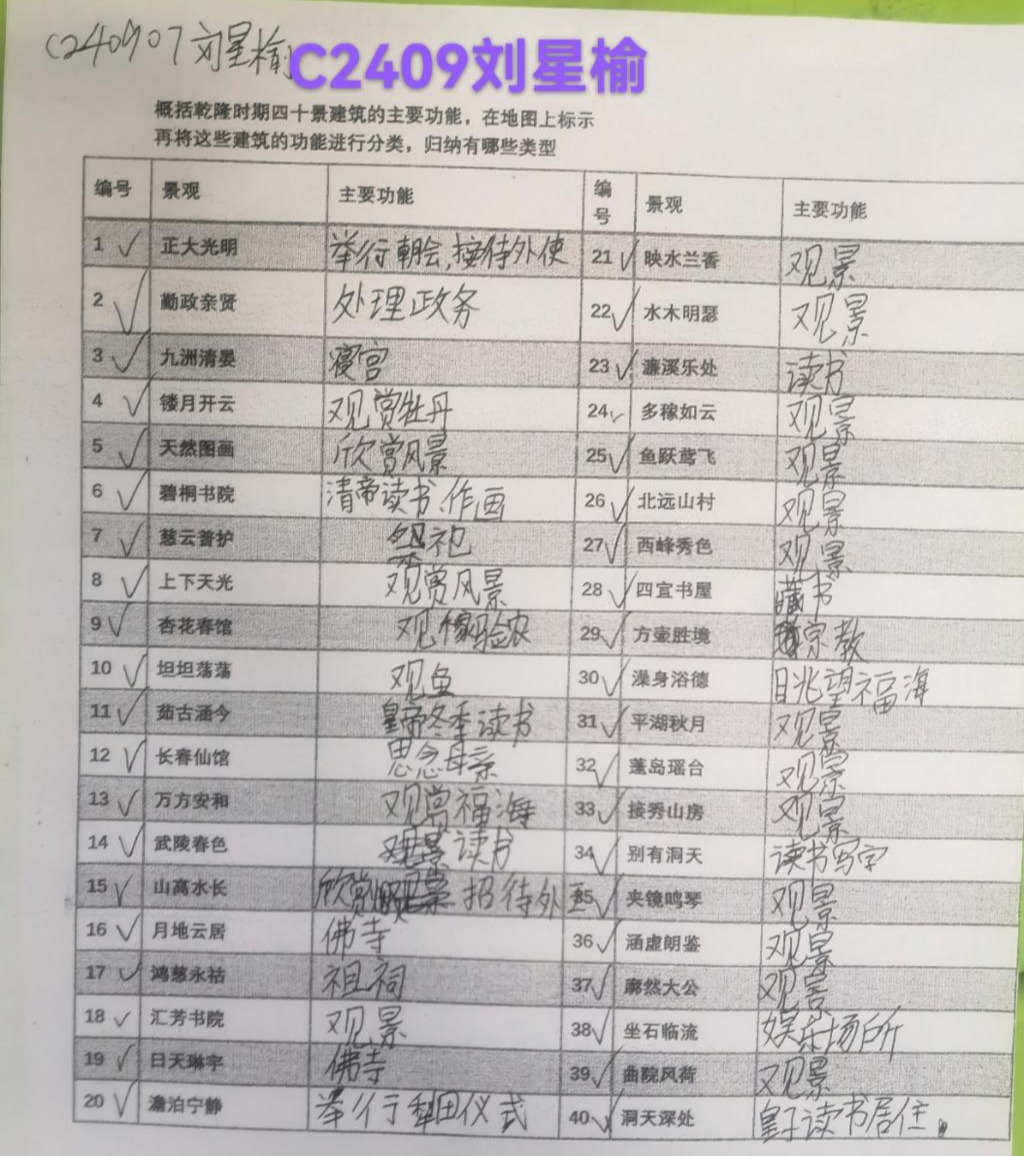 C240907刘星榆
C2409刘星榆
概括乾隆时期四十景建筑的主要功能，在地图上标示
再将这些建筑的功能进行分类，归纳有哪些类型
编号 景观 主要功能 编号 景观 主要功能
1 正大光明 举行朝会,接待外使 21 映水兰香 观景
2 勤政亲贤 处理政务 22 水木明瑟 观景
3 九洲清晏 寝宫 23 濂溪乐处 读书
4 镂月开云 观赏牡丹 24 多稼如云 观景
5 天然图画 欣赏风景 25 鱼跃鸢飞 观景
6 碧桐书院 清帝读书、作画 26 北远山村 观景
7 慈云普护 祭祀 27 西峰秀色 观景
8 上下天光 观赏风景 28 四宜书屋 藏书
9 杏花春馆 观稼验农 29 方壶胜境 宗教
10 坦坦荡荡 观鱼 30 澡身浴德 眺望福海
11 茹古涵今 皇帝冬季读书 31 平湖秋月 观景
12 长春仙馆 思念母亲 32 蓬岛瑶台 观景
13 万方安和 观赏福海 33 接秀山房 观景
14 武陵春色 观景读书 34 别有洞天 读书写字
15 山高水长 欣赏 招待外 35 夹镜鸣琴 观景
16 月地云居 佛寺 36 涵虚朗鉴 观景
17 鸿慈永祜 祖祠 37 廓然大公 观景
18 汇芳书院 观景 38 坐石临流 娱乐场所
19 日天琳宇 佛寺 39 曲院风荷 观景
20 澹泊宁静 举行犁田仪式 40 洞天深处 皇子读书居住。